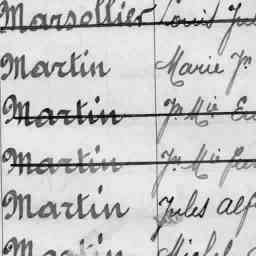 Marsollier Louis
Martin Marie Jn
Martin Jn Mie
Martin Jn Mie
Martin Jules Alf
Martin Michel